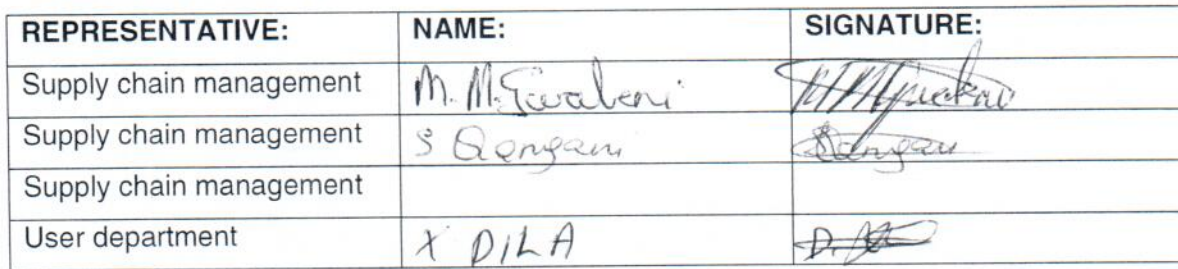 REPRESENTATIVE: NAME: SIGNATURE:
Supply chain management M. M. Gwabeni
Supply chain management S Qangani
Supply chain management
User department X DILA